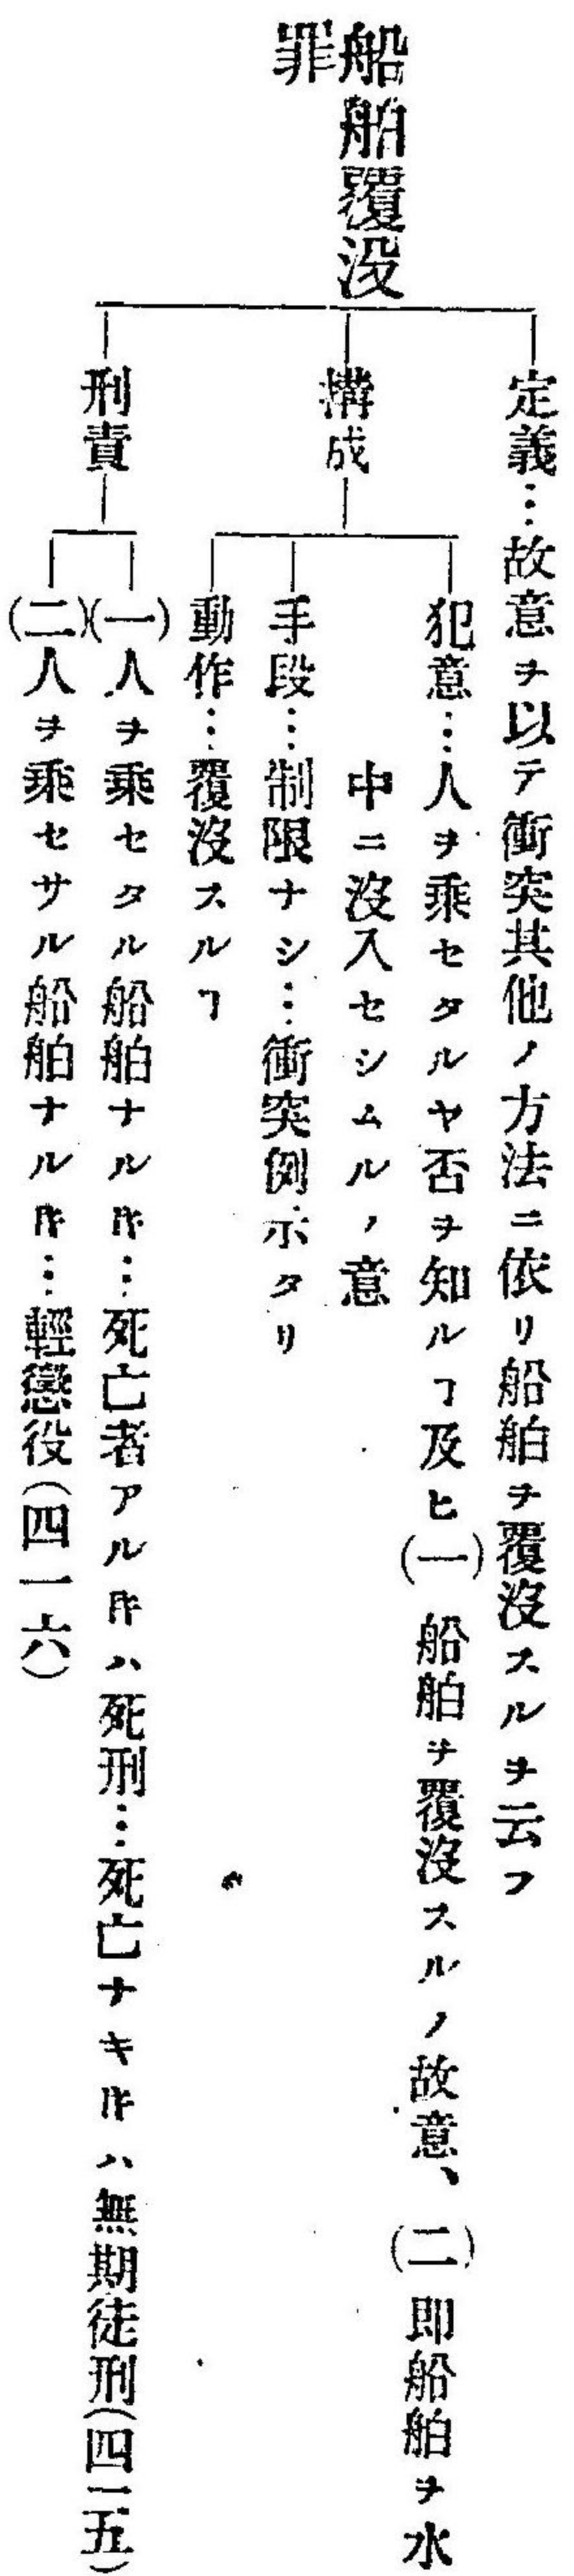 船舶覆没
罪
定義…故意ヲ以テ衝突其他ノ方法ニ依リ船舶ヲ覆沒スルヲ云フ
構成
犯意…人ヲ乘セタルヤ否ヲ知ルヿ及ヒ(一)船舶ヲ覆沒スルノ故意、(二)即船舶ヲ水
中ニ沒入セシムルノ意
手段…制限ナシ…衝突例示タリ
動作…覆沒スルヿ
刑責
(一)人ヲ乘セタル船舶ナル𪜈…死亡者アル𪜈ハ死刑…死亡ナキ𪜈ハ無期徒刑(四一五)
(二)人ヲ乘セサル船舶ナル𪜈…輕懲役(四一六)